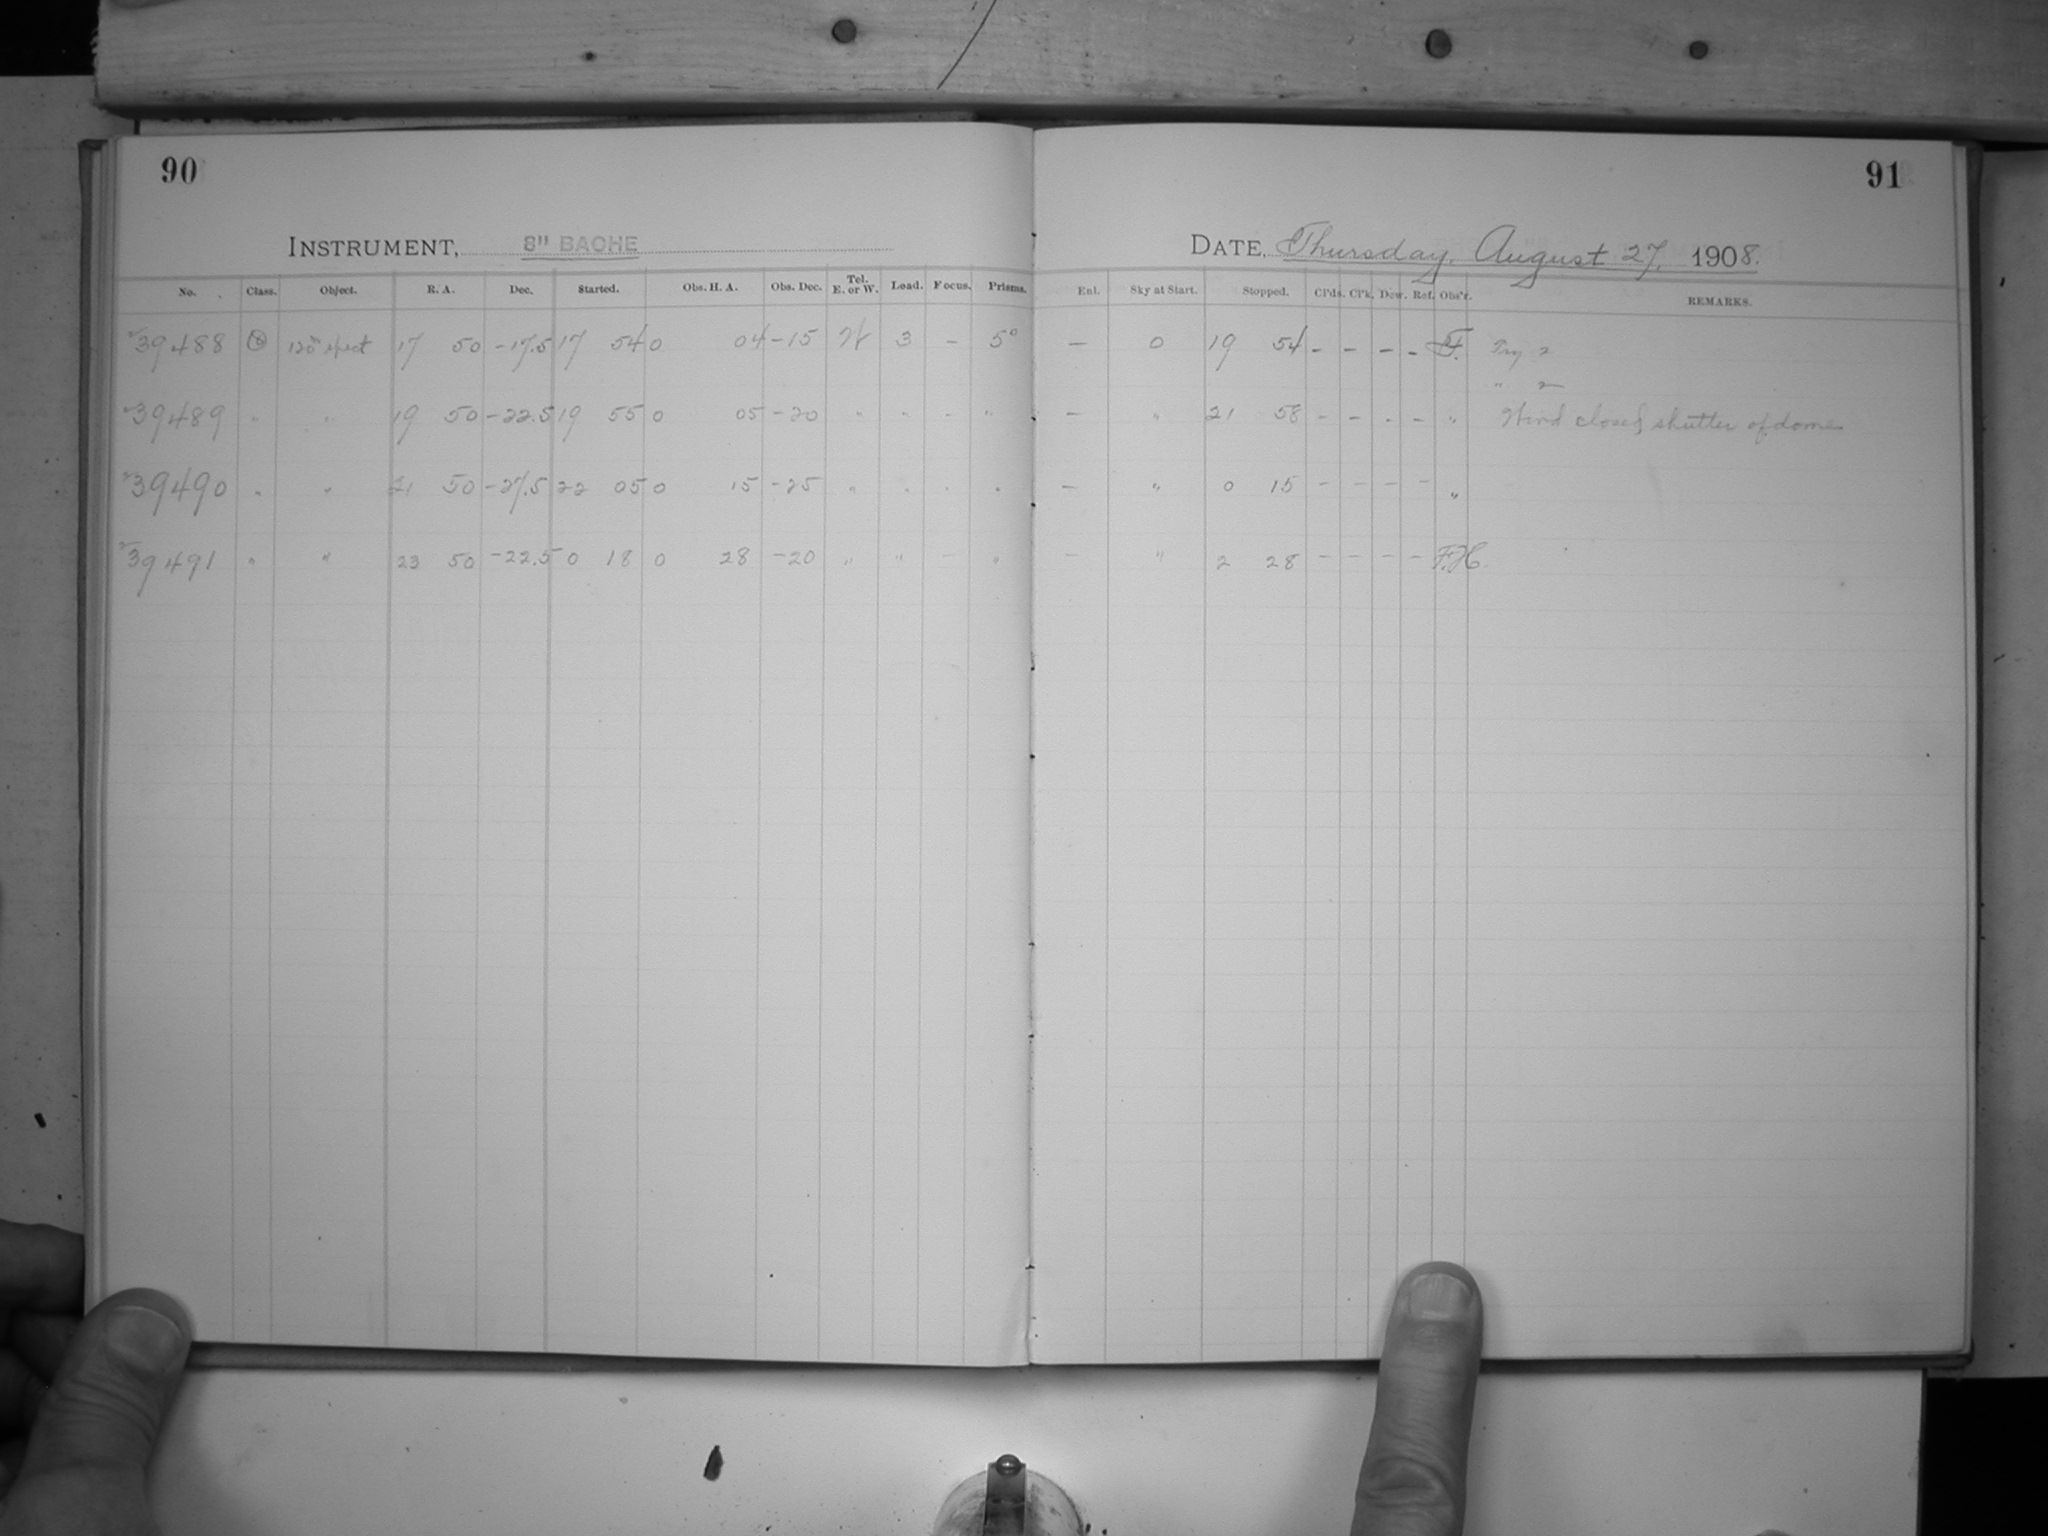 90
91
INSTRUMENT, 8" BACHE
DATE, Thursday, August 27, 1908.
No. Class. Object. R. A. Dec. Started. Obs. H. A. Obs. Dec. Tel. E. or W. Load. Focus. Prisms. Enl. Sky at Start. Stopped. Cl'ds. Cl'k. Dew. Ref. Obs'r. REMARKS.
39488 17 50 -17.5 17 54 0 04 -15 W 3 - 5° - 0 19 54 - - - - F. Try 2
" 2
39489 " " 19 50 -22.5 19 55 0 05 -20 " " - " - " 21 58 - - - - " Wind closed shutter of dome
39490 " " 21 50 -27.5 22 05 0 15 -25 " " - " - " 0 15 - - - - "
39491 " " 23 50 -22.5 0 18 0 28 -20 " " - " - " 2 28 - - - - F.H.